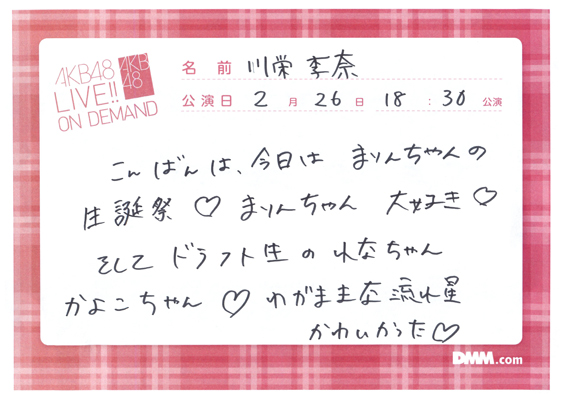 AKB48
LIVE!!
ON DEMAND
AKB
48
名前 川栄李奈
公演日 2月26日 18:30公演
こんばんは、今日は まりんちゃんの
生誕祭♡ まりんちゃん 大好き♡
そして ドラフト生の れなちゃん
かよこちゃん♡ わがままな流れ星
かわいかった♡
DMM.com